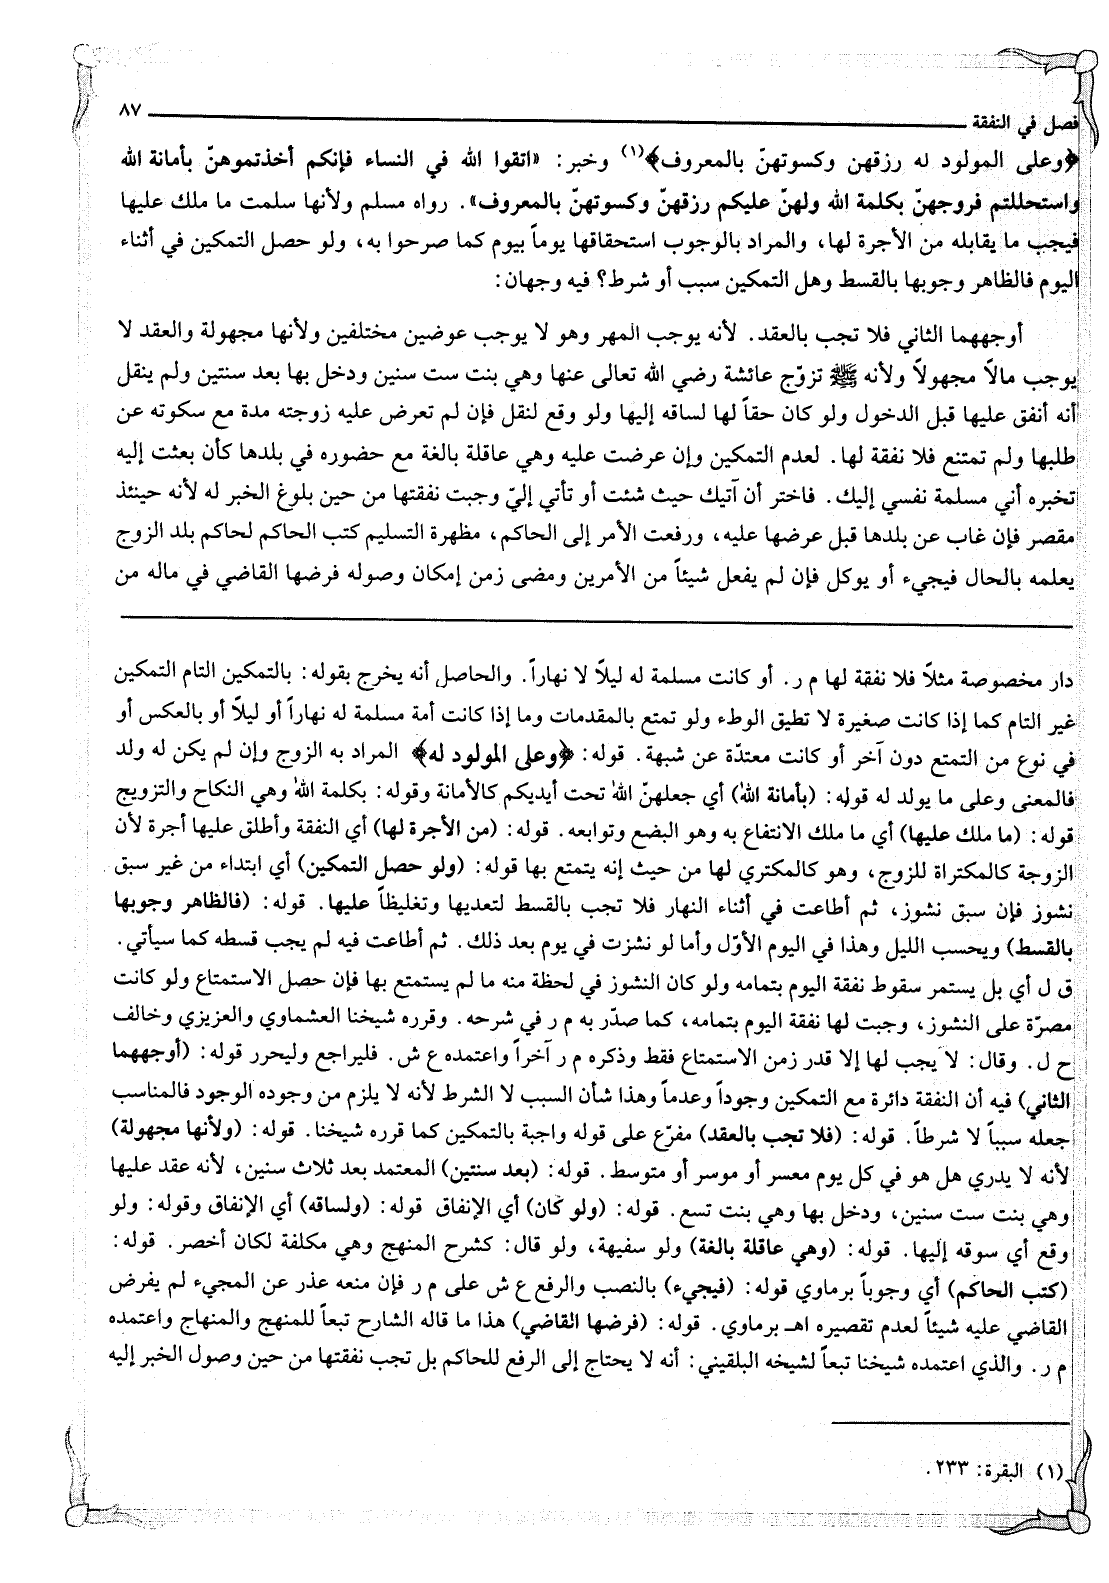 فصل في النفقة ٨٧
﴿وعلى المولود له رزقهن وكسوتهنّ بالمعروف﴾(١) وخبر: «اتقوا الله في النساء فإنكم أخذتموهنّ بأمانة الله
واستحللتم فروجهنّ بكلمة الله ولهنّ عليكم رزقهنّ وكسوتهنّ بالمعروف». رواه مسلم ولأنها سلمت ما ملك عليها
فيجب ما يقابله من الأجرة لها، والمراد بالوجوب استحقاقها يوماً بيوم كما صرحوا به، ولو حصل التمكين في أثناء
اليوم فالظاهر وجوبها بالقسط وهل التمكين سبب أو شرط؟ فيه وجهان:
أوجههما الثاني فلا تجب بالعقد. لأنه يوجب المهر وهو لا يوجب عوضين مختلفين ولأنها مجهولة والعقد لا
يوجب مالاً مجهولاً ولأنه ﷺ تزوّج عائشة رضي الله تعالى عنها وهي بنت ست سنين ودخل بها بعد سنتين ولم ينقل
أنه أنفق عليها قبل الدخول ولو كان حقاً لها لساقه إليها ولو وقع لنقل فإن لم تعرض عليه زوجته مدة مع سكوته عن
طلبها ولم تمتنع فلا نفقة لها. لعدم التمكين وإن عرضت عليه وهي عاقلة بالغة مع حضوره في بلدها كأن بعثت إليه
تخبره أني مسلمة نفسي إليك. فاختر أن آتيك حيث شئت أو تأتي إليّ وجبت نفقتها من حين بلوغ الخبر له لأنه حينئذ
مقصر فإن غاب عن بلدها قبل عرضها عليه، ورفعت الأمر إلى الحاكم، مظهرة التسليم كتب الحاكم لحاكم بلد الزوج
يعلمه بالحال فيجيء أو يوكل فإن لم يفعل شيئاً من الأمرين ومضى زمن إمكان وصوله فرضها القاضي في ماله من
دار مخصوصة مثلاً فلا نفقة لها م ر. أو كانت مسلمة له ليلاً لا نهاراً. والحاصل أنه يخرج بقوله: بالتمكين التام التمكين
غير التام كما إذا كانت صغيرة لا تطيق الوطء ولو تمتع بالمقدمات وما إذا كانت أمة مسلمة له نهاراً أو ليلاً أو بالعكس أو
في نوع من التمتع دون آخر أو كانت معتدّة عن شبهة. قوله: ﴿وعلى المولود له﴾ المراد به الزوج وإن لم يكن له ولد
فالمعنى وعلى ما يولد له قوله: (بأمانة الله) أي جعلهنّ الله تحت أيديكم كالأمانة وقوله: بكلمة الله وهي النكاح والتزويج
قوله: (ما ملك عليها) أي ما ملك الانتفاع به وهو البضع وتوابعه. قوله: (من الأجرة لها) أي النفقة وأطلق عليها أجرة لأن
الزوجة كالمكتراة للزوج، وهو كالمكتري لها من حيث إنه يتمتع بها قوله: (ولو حصل التمكين) أي ابتداء من غير سبق
نشوز فإن سبق نشوز، ثم أطاعت في أثناء النهار فلا تجب بالقسط لتعديها وتغليظاً عليها. قوله: (فالظاهر وجوبها
بالقسط) ويحسب الليل وهذا في اليوم الأوّل وأما لو نشزت في يوم بعد ذلك. ثم أطاعت فيه لم يجب قسطه كما سيأتي.
ق ل أي بل يستمر سقوط نفقة اليوم بتمامه ولو كان النشوز في لحظة منه ما لم يستمتع بها فإن حصل الاستمتاع ولو كانت
مصرّة على النشوز، وجبت لها نفقة اليوم بتمامه، كما صدّر به م ر في شرحه. وقرره شيخنا العشماوي والعزيزي وخالف
ح ل. وقال: لا يجب لها إلا قدر زمن الاستمتاع فقط وذكره م ر آخراً واعتمده ع ش. فليراجع وليحرر قوله: (أوجههما
الثاني) فيه أن النفقة دائرة مع التمكين وجوداً وعدماً وهذا شأن السبب لا الشرط لأنه لا يلزم من وجوده الوجود فالمناسب
جعله سبباً لا شرطاً. قوله: (فلا تجب بالعقد) مفرّع على قوله واجبة بالتمكين كما قرره شيخنا. قوله: (ولأنها مجهولة)
لأنه لا يدري هل هو في كل يوم معسر أو موسر أو متوسط. قوله: (بعد سنتين) المعتمد بعد ثلاث سنين، لأنه عقد عليها
وهي بنت ست سنين، ودخل بها وهي بنت تسع. قوله: (ولو كان) أي الإنفاق قوله: (ولساقه) أي الإنفاق وقوله: ولو
وقع أي سوقه إليها. قوله: (وهي عاقلة بالغة) ولو سفيهة، ولو قال: كشرح المنهج وهي مكلفة لكان أخصر. قوله:
(كتب الحاكم) أي وجوباً برماوي قوله: (فيجيء) بالنصب والرفع ع ش على م ر فإن منعه عذر عن المجيء لم يفرض
القاضي عليه شيئاً لعدم تقصيره اهـ برماوي. قوله: (فرضها القاضي) هذا ما قاله الشارح تبعاً للمنهج والمنهاج واعتمده
م ر. والذي اعتمده شيخنا تبعاً لشيخه البلقيني: أنه لا يحتاج إلى الرفع للحاكم بل تجب نفقتها من حين وصول الخبر إليه
(١) البقرة: ٢٣٣.